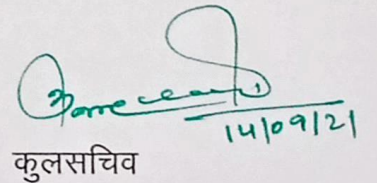 14/09/21
कुलसचिव